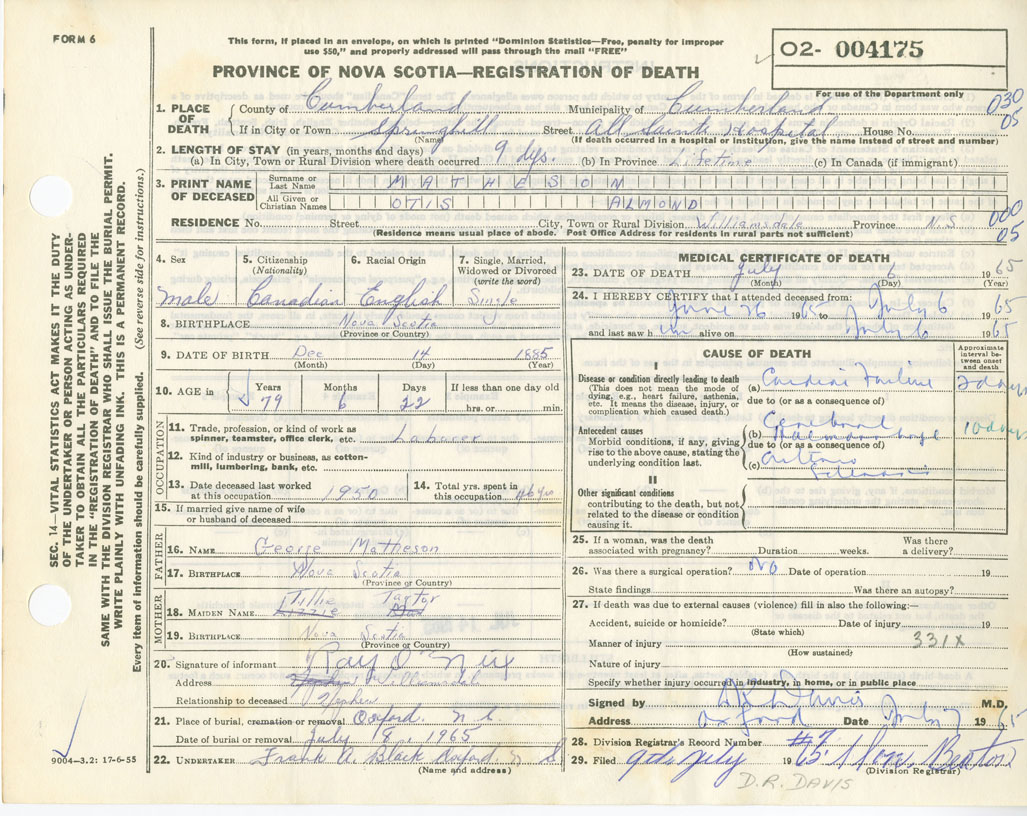 FORM 6
This form, if placed in an envelope, on which is printed "Dominion Statistics—Free, penalty for improper
use $50," and properly addressed will pass through the mail "FREE"
02- 004175
For use of the Department only
PROVINCE OF NOVA SCOTIA—REGISTRATION OF DEATH
1. PLACE OF DEATH
County of Cumberland Municipality of Cumberland 030
If in City or Town Springhill Street All Saints Hospital House No. 05
(Name) (If death occurred in a hospital or institution, give the name instead of street and number)
2. LENGTH OF STAY (in years, months and days)
(a) In City, Town or Rural Division where death occurred 9 dys. (b) In Province Lifetime (c) In Canada (if immigrant)
3. PRINT NAME OF DECEASED
Surname or Last Name MATHESON
All Given or Christian Names OTIS ALMOND
RESIDENCE No. Street City, Town or Rural Division Williamsdale Province N.S 000 05
(Residence means usual place of abode. Post Office Address for residents in rural parts not sufficient)
SEC. 14—VITAL STATISTICS ACT MAKES IT THE DUTY
OF THE UNDERTAKER OR PERSON ACTING AS UNDER-
TAKER TO OBTAIN ALL THE PARTICULARS REQUIRED
IN THE "REGISTRATION OF DEATH" AND TO FILE THE
SAME WITH THE DIVISION REGISTRAR WHO SHALL ISSUE THE BURIAL PERMIT.
WRITE PLAINLY WITH UNFADING INK. THIS IS A PERMANENT RECORD.
Every item of information should be carefully supplied. (See reverse side for instructions.)
4. Sex
male
5. Citizenship (Nationality)
Canadian
6. Racial Origin
English
7. Single, Married, Widowed or Divorced (write the word)
Single
8. BIRTHPLACE Nova Scotia
(Province or Country)
9. DATE OF BIRTH Dec 14 1885
(Month) (Day) (Year)
10. AGE in Years Months Days If less than one day old
79 6 22 hrs. or min.
OCCUPATION
11. Trade, profession or kind of work as
spinner, teamster, office clerk, etc. Labourer
12. Kind of industry or business, as cotton-
mill, lumbering, bank, etc.
13. Date deceased last worked
at this occupation 1950
14. Total yrs. spent in
this occupation 46 yrs
15. If married give name of wife
or husband of deceased
FATHER
16. NAME George Matheson
17. BIRTHPLACE Nova Scotia
(Province or Country)
MOTHER
18. MAIDEN NAME Tillie
19. BIRTHPLACE Nova Scotia
(Province or Country)
20. Signature of informant Ray
Address Williamsdale
Relationship to deceased Nephew
21. Place of burial, cremation or removal Oxford. N.S.
Date of burial or removal July 1965
22. UNDERTAKER Frank A. Black Oxford N S
(Name and address)
9004—3.2: 17-6-55
MEDICAL CERTIFICATE OF DEATH
23. DATE OF DEATH July 6 1965
(Month) (Day) (Year)
24. I HEREBY CERTIFY that I attended deceased from:
June 26 1965 to July 6 1965
and last saw him alive on July 6 1965
CAUSE OF DEATH
Approximate interval between onset and death
I
Disease or condition directly leading to death
(This does not mean the mode of
dying, e.g., heart failure, asthenia,
etc. It means the disease, injury, or
complication which caused death.)
(a) Cardiac Failure 2 days
due to (or as a consequence of)
Antecedent causes
Morbid conditions, if any, giving
rise to the above cause, stating the
underlying condition last.
(b) Cerebral 10 days
due to (or as a consequence of)
(c)
II
Other significant conditions
contributing to the death, but not
related to the disease or condition
causing it.
25. If a woman, was the death
associated with pregnancy? Duration weeks. Was there
a delivery?
26. Was there a surgical operation? No Date of operation 19
State findings Was there an autopsy?
27. If death was due to external causes (violence) fill in also the following:—
Accident, suicide or homicide? Date of injury 19
(State which)
Manner of injury 331X
(How sustained)
Nature of injury
Specify whether injury occurred in industry, in home, or in public place
Signed by D R Davis M.D.
Address Oxford Date July 7 1965
28. Division Registrar's Record Number #
29. Filed 9th July 1965
(Division Registrar)
D.R. DAVIS